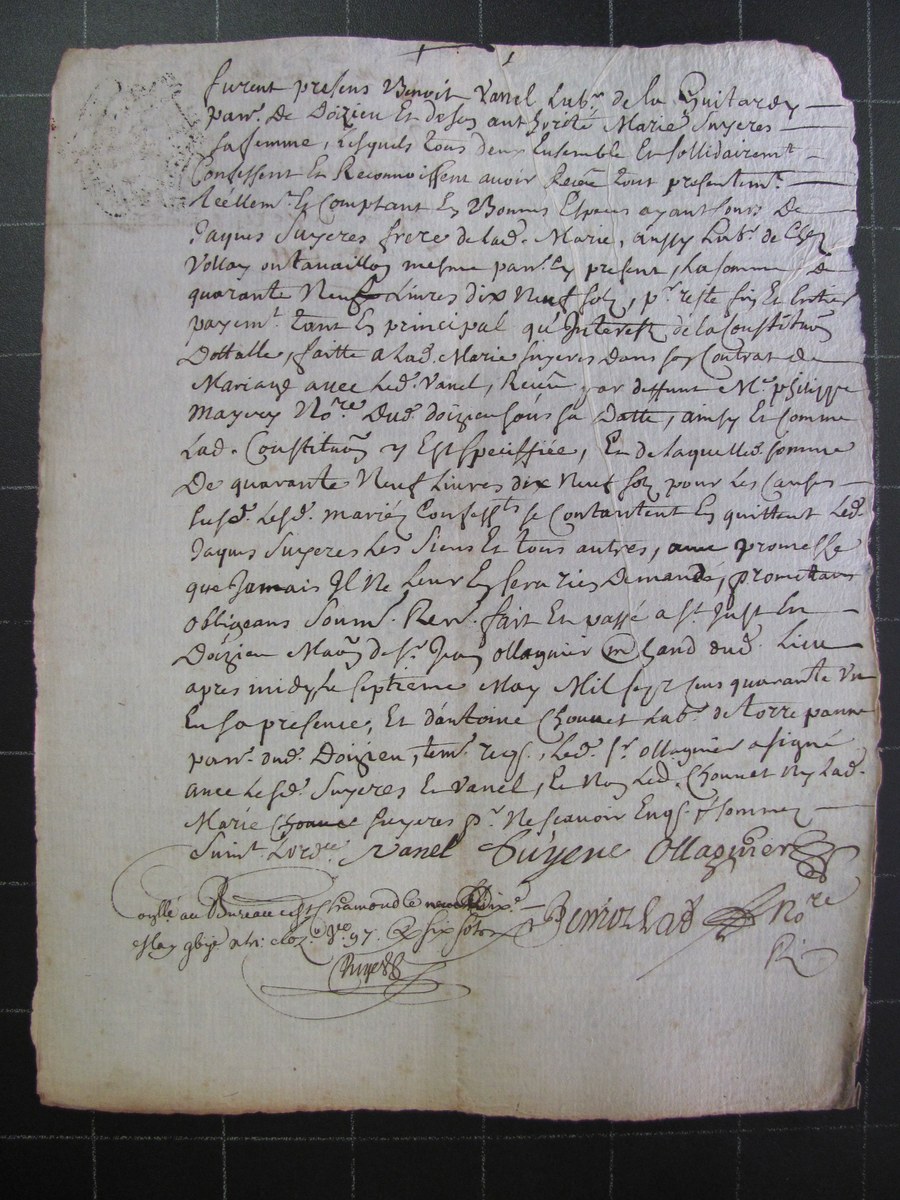 furent presens Benoit Vanel Lab.r de la Guitardy
par.e De Doizieu Et de son authorité Marie Suyeres
sa femme, lesquels tous deux Ensemble Et sollidairem.t
Confessent Et Reconnoissent avoir Receu tout presentem.t
Réellem.t Et Comptant En Bonnes Especes ayant Cours De
Jaques Suyeres frere de lad. Marie, aussy Lab.r de Chez
Vollay ou tavaillon mesme par.e Cy present, la somme De
quarante Neuf Livres dix Neuf solz, p.r reste fin Et Entier
payem.t tant En principal qu'Interest de la Constitu.on
Dottalle, faitte a lad. Marie Suyeres dans son Contrat de
Mariage avec Led. Vanel, Receu par deffunt M.e philippe
No.re Dud. doizieu sous sa Datte, ainsy Et Comme
Lad. Constitu.on y Est speciffiée, En de laquelle d. somme
De quarante Neuf Livres dix Neuf solz pour les Causes
susd. Lesd. mariés Confess.ts se Contantent En quittent Led.
Jaques Suyeres Les siens Et tous autres, avec promesse
que Jamais Il Ne Leur En sera rien Demandé, promettans
obligeans soum. Ren. fait En passé a S.t Just En
Doizieu Mai.on de s.r Jean ollagnier m.chand dud. Lieu
apres midy le septieme May Mil sept cens quarante Un
En sa presence, Et d'antoine Chouvet Lab.r de torrepanne
par.e dud. Doizieu, tem. req. Led. s.r ollagnier a signé
avec Lesd. Suyeres Et Vanel, Et Non Led. Chouvet Ny Lad.
Marie Suyeres p.r Ne scavoir Enq. Et sommez
Suiv.t L'ord.ce Vanel Suyere Ollagnier
No.re
au Bureau de S.t Chamond le dix.e
May 97. six sols